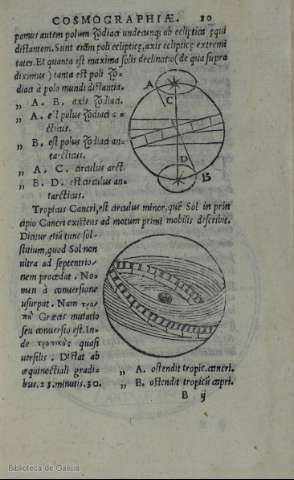 COSMOGRAPHIÆ. 20
pamus autem polum Zodiaci undecunq; ab ecliptica equi
distantem. Sunt enim poli eclipticę, axis eclipticę extremi
tates. Et quanta est maxima solis declinatio (de qua supra
diximus) tanta est poli Zo-
diaci à polo mundi distantia.
„ A. B. axis Zodiaci.
„ A. est polus Zodiaci
cticus.
„ B. est polus Zodiaci an-
tarcticus.
„ A. C. circulus arct.
„ B. D. est circulus an-
tarcticus.
A
C
D
B
Tropicus Cancri, est circulus minor, quē Sol in prin
cipio Cancri existens ad motum primi mobilis describit.
Dicitur etiā tunc sol-
stitium, quod Sol non
ultra ad septentrio-
nem procedat. No-
men à conuersione
usurpat. Nam τρο-
πὴ Græcis mutatio
seu conuersio est. In-
de τροπικὸς quasi
uersilis. Distat ab
æquinoctiali gradi-
bus. 23. minutis. 30.
„ A. ostendit tropic. cancri.
„ B. ostendit tropicū capri.
B ij
Biblioteca de Galicia